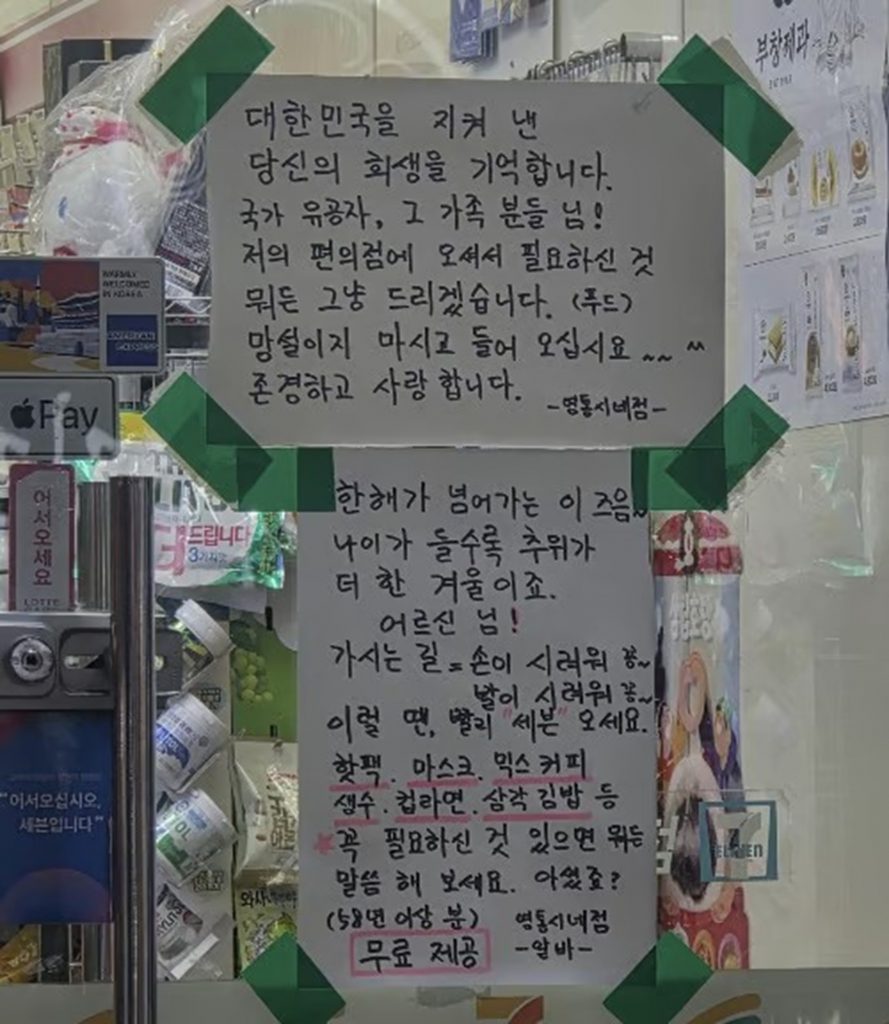 대한민국을 지켜 낸
당신의 희생을 기억합니다.
국가 유공자, 그 가족 분들 님!
저의 편의점에 오셔서 필요하신 것
뭐든 그냥 드리겠습니다. (푸드)
망설이지 마시고 들어 오십시요 ~~ ^^
존경하고 사랑 합니다.
-영통시네점-
한해가 넘어가는 이 즈음~
나이가 들수록 추위가
더 한 겨울이죠.
어르신 님!
가시는 길 = 손이 시려워 꽁~
발이 시려워 꽁~
이럴 땐, 빨리 "세븐" 오세요.
핫팩. 마스크. 믹스커피
생수. 컵라면. 삼각김밥 등
꼭 필요하신 것 있으면 뭐든
말씀 해 보세요. 아셨죠?
(58년 이상 분) 영통시네점
-알바-
무료 제공
부창제과
WARMLY
WELCOMED
IN KOREA
AMERICAN
EXPRESS
Pay
어서오세요
LOTTE
드립니다
"어서오십시오,
세븐입니다"
와사
ELEVEN